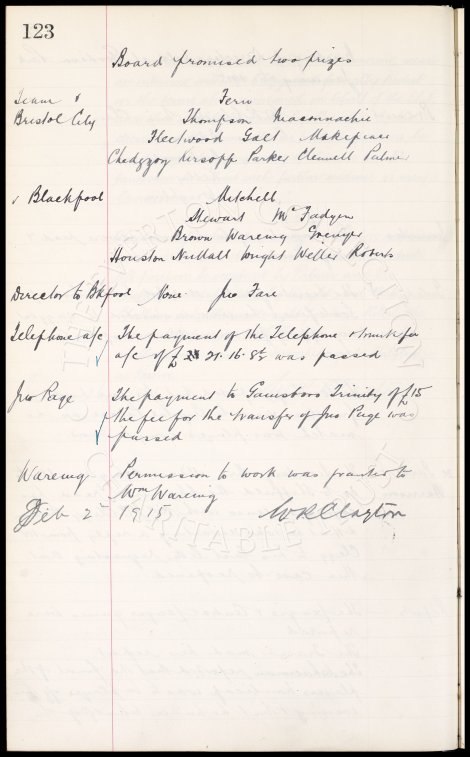 123
Board promised two prizes
Team v Fern
Bristol City Thompson Maconnachie
Fleetwood Galt Makepeace
Chedgzoy Kirsopp Parker Clennell Palmer
v Blackpool Mitchell
Stewart McFadyen
Brown Wareing Grenyer
Houston Nuttall Wright Weller Roberts
Director to Bkpool None. Jno Fare
Telephone a/c The payment of the Telephone &
a/c of £ 21.16.8½ was passed
Jno Page The payment to Gainsboro Trinity of £15
the fee for the transfer of Jno Page was
passed
Wareing Permission to work was granted to
Wm Wareing
Feb 2nd 1915 WRClayton